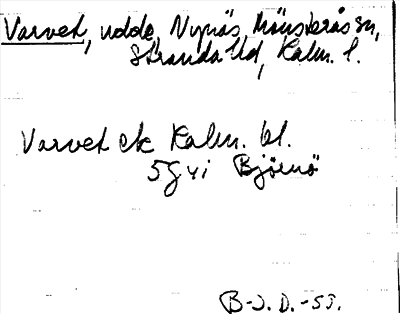 Varvet, udde, Nynäs, Mönsterås sn,
Stranda hd, Kalm. l.
Varvet ek Kalm. bl.
5g vi Björnö
B-J. D. -53.